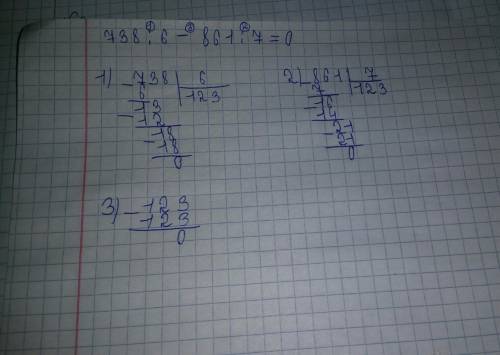 738:6-861:7=0
1 3 2
1) -738 | 6
6 | 123
-13
12
-18
18
0
2) -861 | 7
7 | 123
-16
14
-21
21
0
3) -123
123
0